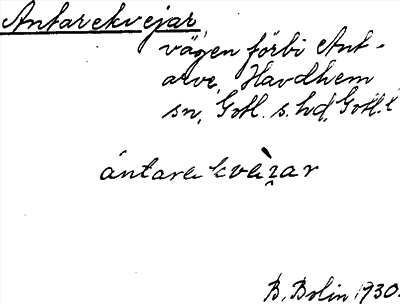 Antarekvejar
vägen förbi Ant-
arve, Havdhem
sn, Gotl. s. hd, Gotl. l
ántarekvèi̯ar
B. Bolin 1930.